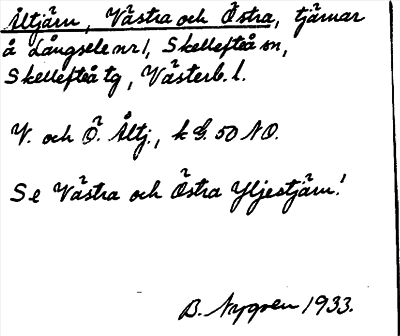 Åltjärn, Västra och Östra, tjärnar
å Långsele nr 1, Skellefteå sn,
Skellefteå tg, Västerb. l.
V. och Ö. Åltj., k G. 50 NO.
Se Västra och Östra Yljestjärn!
B. Nygren 1933.